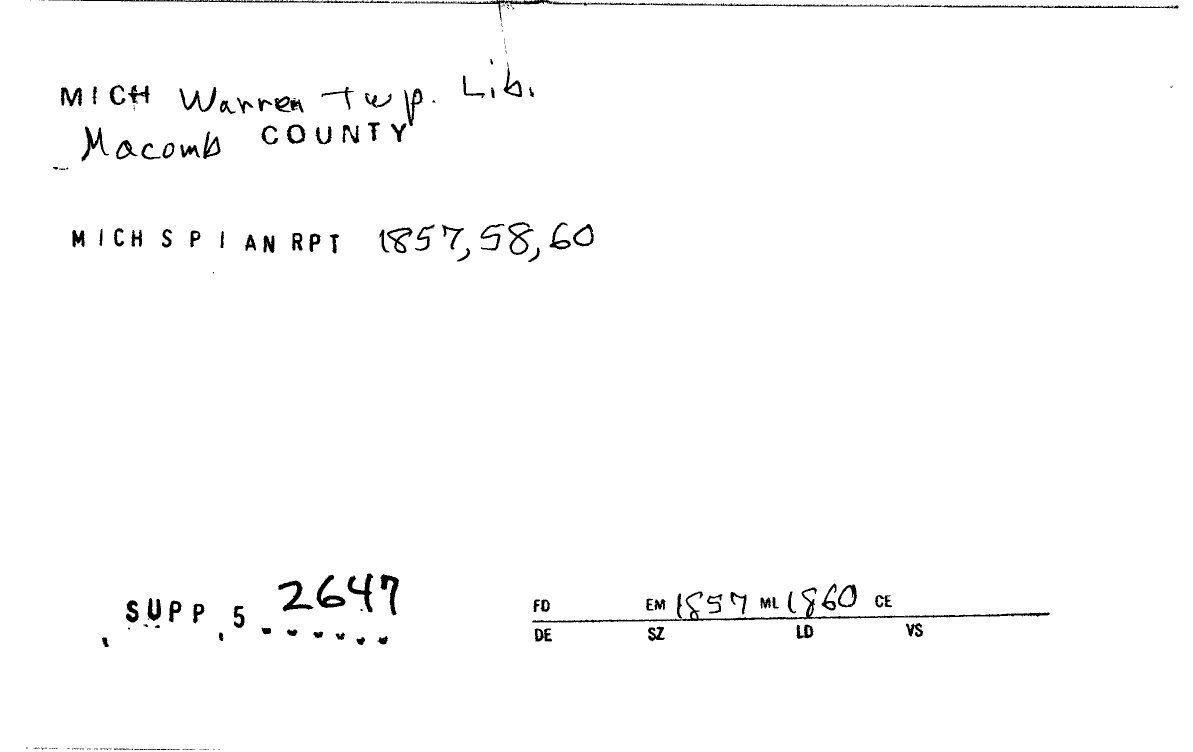 MICH Warren Twp. Lib.
Macomb COUNTY
MICH S P I AN RPT 1857, 58, 60
SUPP 5 2647
FD EM 1857 ML 1860 CE
DE SZ LD VS